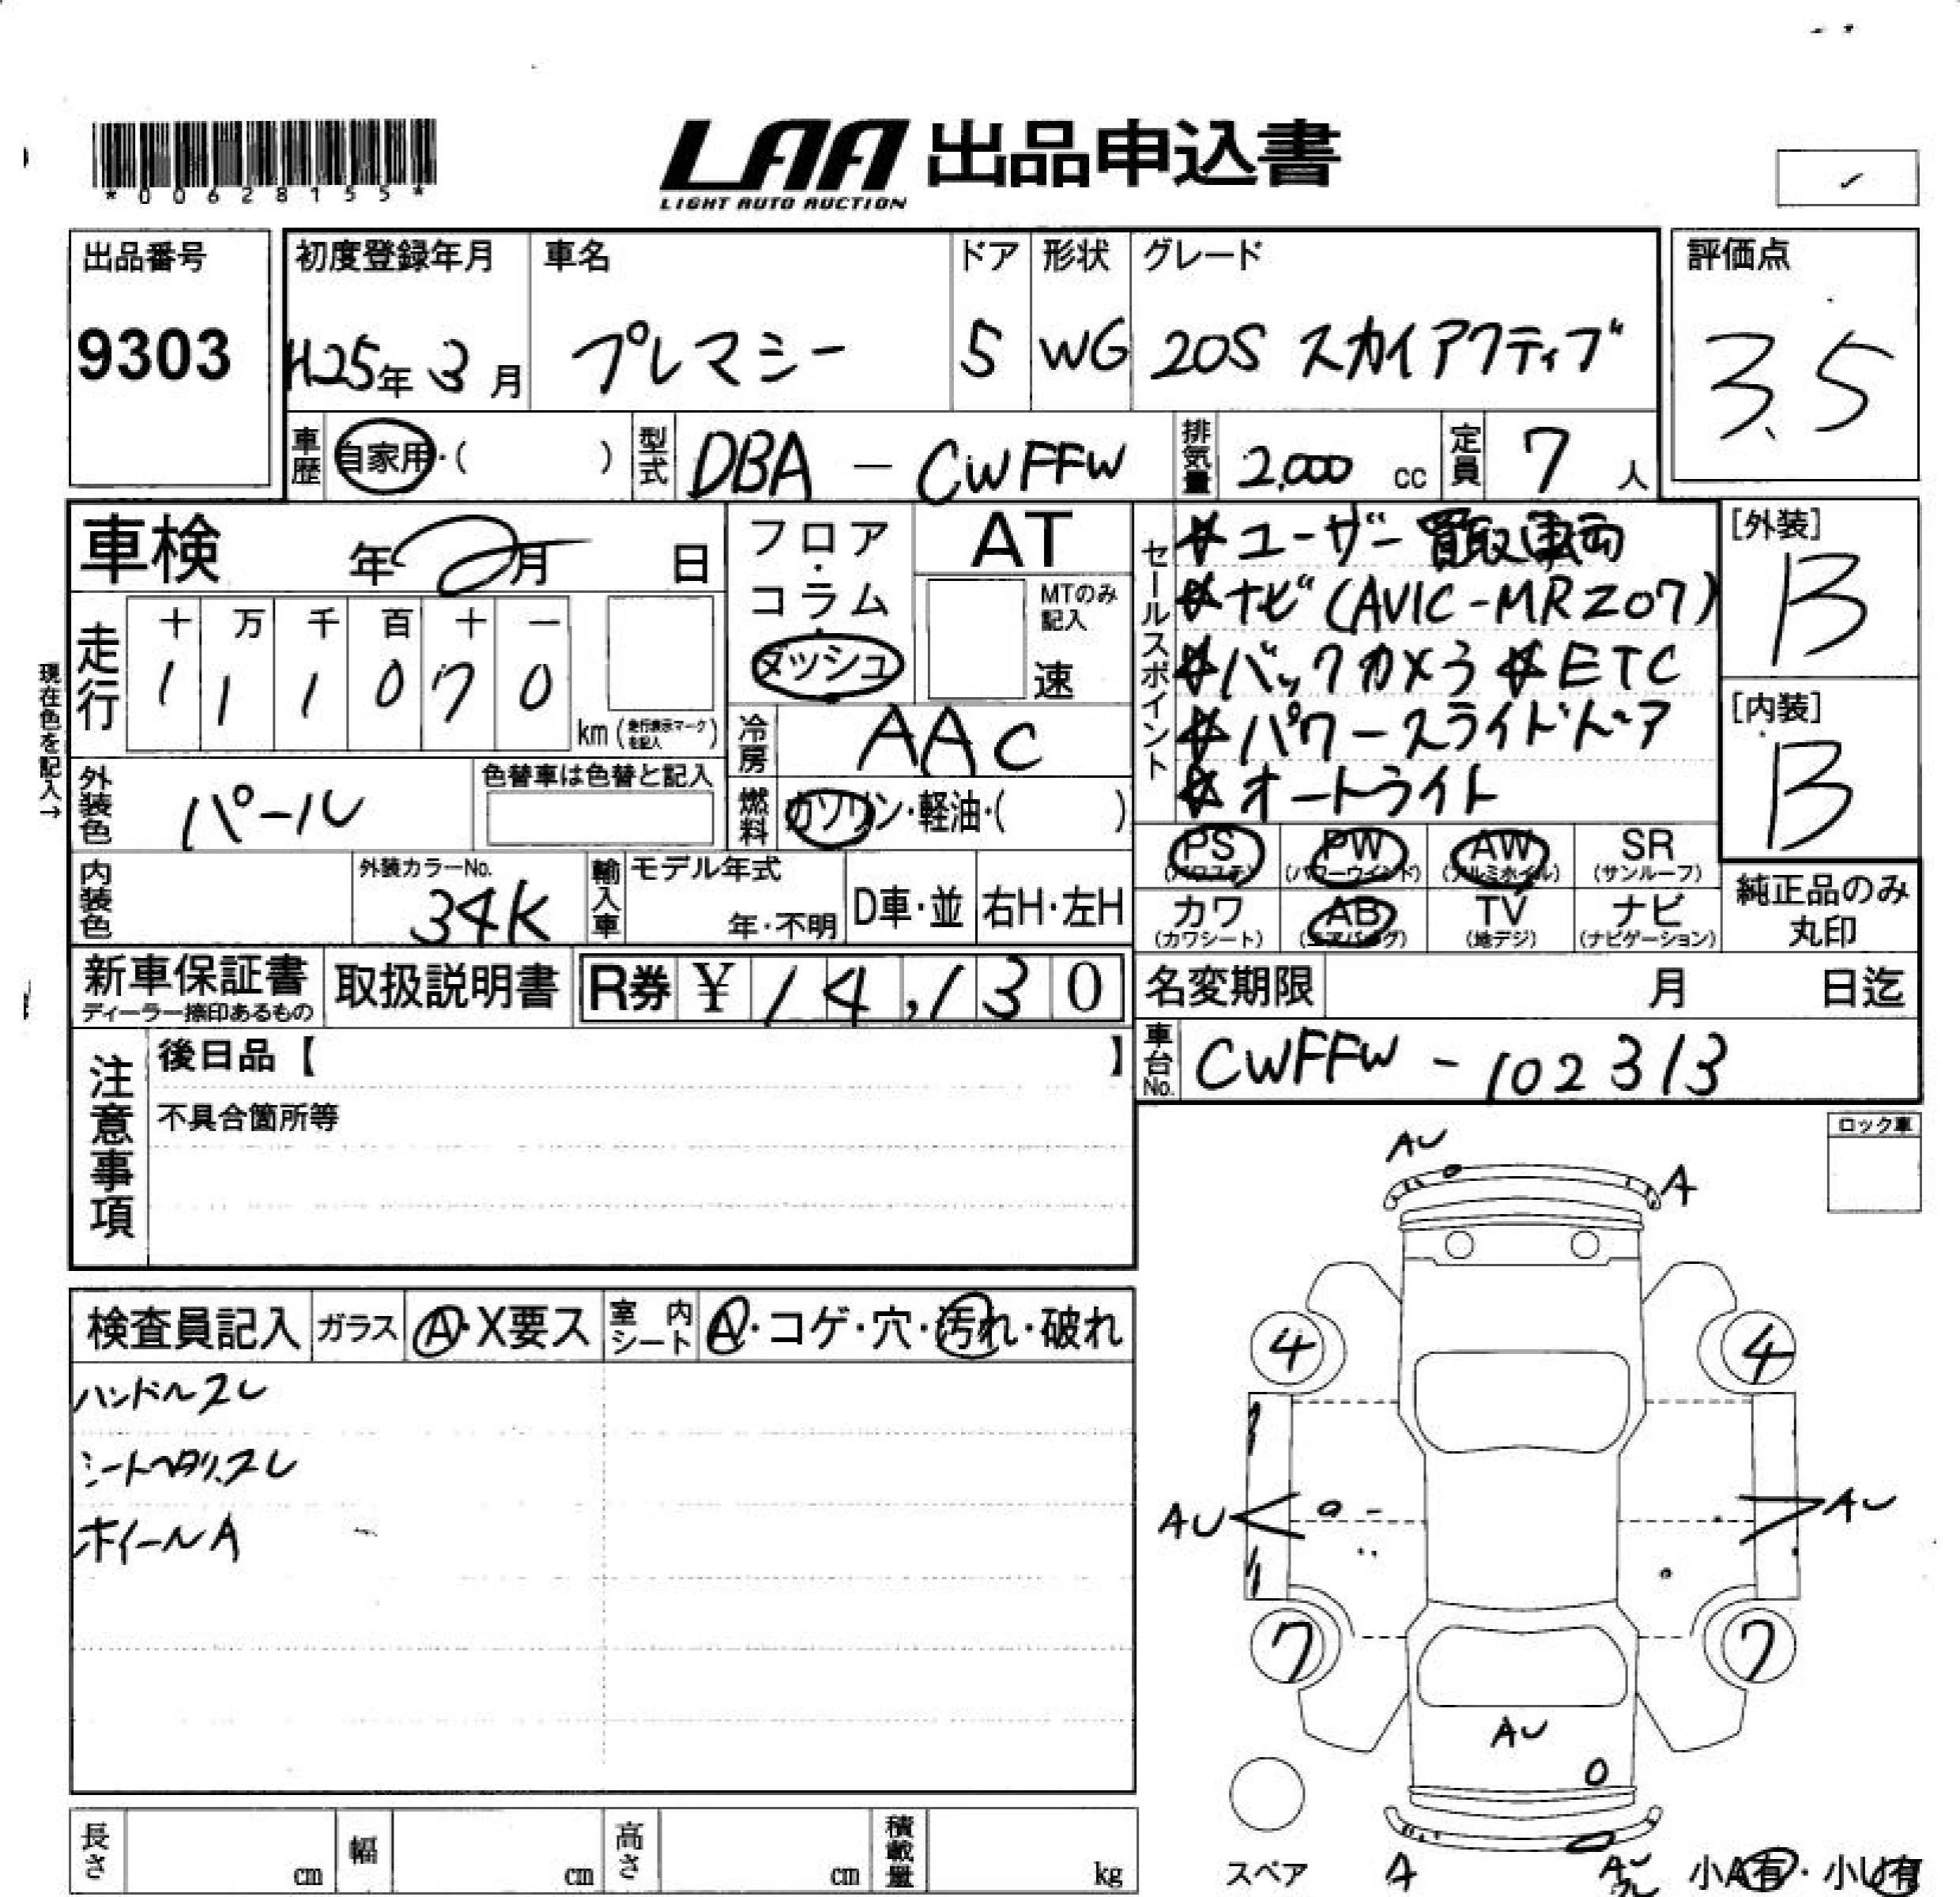 *00628155*
LAA 出品申込書
LIGHT AUTO AUCTION
✓
出品番号
9303
初度登録年月
H25年3月
車名
プレマシー
ドア
5
形状
WG
グレード
20S スカイアクティブ
評価点
3.5
車歴
自家用・( )
型式
DBA - CWFFW
排気量
2,000 cc
定員
7 人
車検 年 月 日
フロア・コラム・ダッシュ
AT
MTのみ記入
速
セールスポイント
☆ユーザー買取車両
☆ナビ(AVIC-MRZ07)
☆バックカメラ ☆ETC
☆パワースライドドア
☆オートライト
[外装]
B
[内装]
B
現在色を記入→
走行
十 万 千 百 十 一
1 1 1 0 7 0
km(走行表示マークを記入)
冷房
AAC
外装色
パール
色替車は色替と記入
燃料
ガソリン・軽油・( )
PS
(パワステ)
PW
(パワーウインド)
AW
(アルミホイル)
SR
(サンルーフ)
カワ
(カワシート)
AB
(エアバッグ)
TV
(地デジ)
ナビ
(ナビゲーション)
純正品のみ
丸印
内装色
外装カラーNo.
34K
輸入車
モデル年式
年・不明
D車・並
右H・左H
新車保証書
ディーラー捺印あるもの
取扱説明書
R券 ¥14,130
名変期限 月 日迄
車台No.
CWFFW - 102313
注意事項
後日品【 】
不具合箇所等
ロック車
AU
A
検査員記入
ガラス
A・X要ス
室内シート
A・コゲ・穴・汚れ・破れ
ハンドルスレ
シートヘタリ、スレ
ホイールA
4
4
AU
AU
7
7
AU
スペア
A
AU
小A有・小U有
長さ cm
幅 cm
高さ cm
積載量 kg